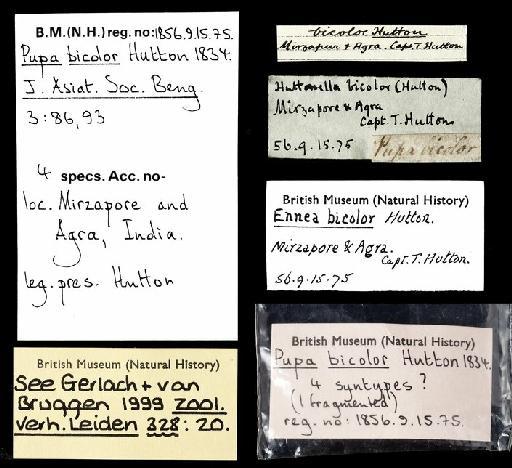 B.M.(N.H.) reg. no: 1856.9.15.75.
Pupa bicolor Hutton 1834:
J. Asiat. Soc. Beng.
3: 86, 93
4 specs. Acc. no-
loc. Mirzapore and
Agra, India.
leg. pres. Hutton
British Museum (Natural History)
See Gerlach + van
Bruggen 1999 Zool.
Verh. Leiden 328: 20.
bicolor Hutton
Mirzapur & Agra. Capt. T. Hutton
Huttonella bicolor (Hutton)
Mirzapore & Agra
Capt. T. Hutton
56.9.15.75
Pupa bicolor
British Museum (Natural History)
Ennea bicolor Hutton.
Mirzapore & Agra.
Capt. T. Hutton.
56.9.15.75
British Museum (Natural History)
Pupa bicolor Hutton 1834.
4 syntypes?
(1 fragmented)
reg. no: 1856.9.15.75.